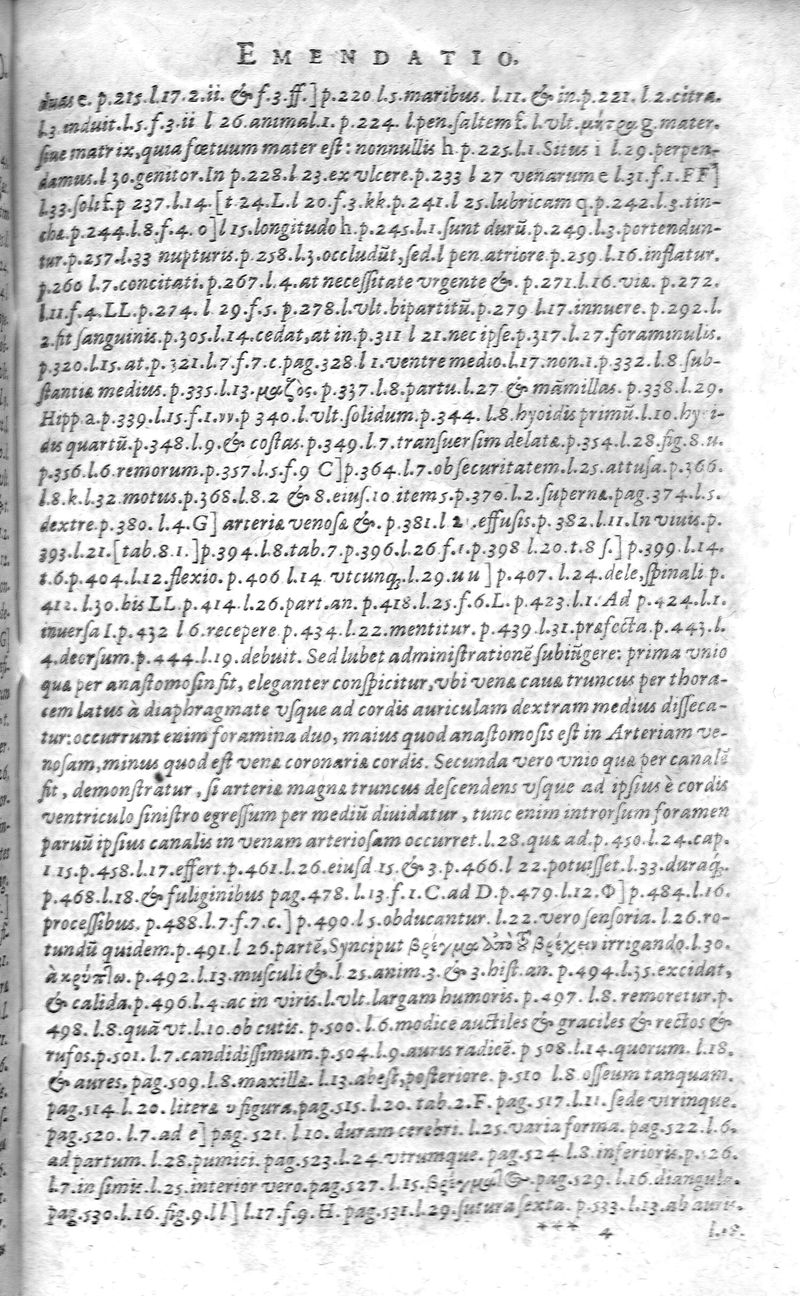 EMENDATIO.
duas e. p.215.l.17.2.ii. & f.3.ff.] p.220 l.5.maribus. l.11. & in.p.221. l 2.citra.
l.3 induit.l.5.f.3.ii l 26.animal.1. p.224. l.pen.saltem f. l.vlt.μήτρα g.mater.
siue matrix, quia fœtuum mater est: nonnullis h.p.225.l.1.Situs i l.29.perpen-
damus.l 30.genitor.In p.228.l.23.ex vlcere.p.233 l 27 venarum e l.31.f.1.FF]
l.33.soli f.p 237.l.14.[t 24.L.l 20.f.3.kk.p.241.l 25.lubricam q.p.242.l.3.tin-
cha.p.244.l.8.f.4. o] l 15.longitudo h.p.245.l.1.sunt durũ.p.249.l.3.portendun-
tur.p.257.l.33 nupturis.p.258.l.3.occludũt, sed.l pen.atriore.p.259.l.16.inflatur.
p.260 l.7.concitati.p.267.l.4.at necessitate vrgente &. p.271.l.16.via. p.272.
l.11.f.4.LL.p.274. l 29.f.5. p.278.l.vlt.bipartitũ.p.279 l.17.innuere.p.292.l.
2.fit sanguinis.p.305.l.14.cedat, at in.p.311 l 21.nec ipse.p.317.l.27.foraminulis.
p.320.l.15.at.p.321.l.7.f.7.c.pag.328 l 1.ventre medio.l.17.non.1.p.332.l.8.sub-
stantiæ medius.p.335.l.13.μαζὸς.p.337.l.8.partu.l.27 & mãmillas.p.338.l.29.
Hipp a.p.339.l.15.f.1.vv.p 340.l.vlt.solidum.p.344. l.8.hyoidis primũ.l.10.hyoi-
dis quartũ.p.348.l.9.& costas.p.349.l.7.transuersim delatæ.p.354.l.28.fig.8.u.
p.356.l.6.remorum.p.357.l.5.f.9 C] p.364.l.7.obsecuritatem.l.25.attusa.p.366.
l.8.k.l.32.motus.p.368.l.8.2 & 8.eius.10.item 5.p.370.l.2.supernæ.pag.374.l.5.
dextre.p.380. l.4.G] arteriæ venosæ &. p.381.l 2 .effusis.p.382.l.11.In viuis.p.
393.l.21.[tab.8.1.]p.394.l.8.tab.7.p.396.l.26 f.1.p.398 l.20.t.8 f.] p.399.l.14.
t.6.p.404.l.12.flexio.p.406 l.14 vtcunq;.l.29.uu] p.407.l.24.dele, spinali p.
412.l.30.bis LL.p.414.l.26.part.an.p.418.l.25.f.6.L.p.423.l.1.Ad p.424.l.1.
inuersa I.p.432 l 6.recepere p.434.l.22.mentitur.p.439.l.31.præfecta.p.443.l.
4.deorsum.p.444.l.19.debuit. Sed lubet administrationẽ subiũgere: prima vnio
quæ per anastomosin fit, eleganter conspicitur, vbi venæ cauæ truncus per thora-
cem latus à diaphragmate vsque ad cordis auriculam dextram medius disseca-
tur: occurrunt enim foramina duo, maius quod anastomosis est in Arteriam ve-
nosam, minus quod est venæ coronariæ cordis. Secunda vero vnio quæ per canalẽ
fit, demonstratur, si arteriæ magnæ truncus descendens vsque ad ipsius è cordis
ventriculo sinistro egressum per mediũ diuidatur, tunc enim introrsum foramen
paruũ ipsius canalis in venam arteriosam occurret.l.28.quæ ad.p.450.l.24.cap.
115.p.458.l.17.effert.p.461.l.26.eiusd 15.& 3.p.466.l 22.potuisset.l.33.duraq;.
p.468.l.18.& fuliginibus pag.478. l.13.f.1.C.ad D.p.479.l.12.Φ] p.484.l.16.
processibus. p.488.l.7.f.7.c.] p.490.l 5.obducantur.l.22.vero sensoria. l.26.ro-
tundũ quidem.p.491.l 26.partẽ, Synciput βρέγμα ἀπὸ τοῦ βρέχειν irrigando.l.30.
p.492.l.13.musculi &.l 25.anim.3.& 3.hist.an. p.494.l.35.excidat,
& calida.p.496.l.4.ac in viris.l.vlt.largam humoris. p.497. l.8. remoretur.p.
498. l.8.quã vt.l.10.ob cutis. p.500. l.6.modice auctiles & graciles & rectos &
rufos.p.501.l.7.candidissimum.p.504.l.9.auris radicẽ. p 508.l.14.quorum. l.18.
& aures.pag.509.l.8.maxillæ. l.13.abest, posteriore. p.510 l.8.osseum tanquam.
pag.514.l.20.literæ υ figura.pag.515.l.20.tab.2.F. pag.517.l.11.sede vtrinque.
pag.520. l.7.ad e] pag. 521. l 10. duram cerebri. l.25.varia forma. pag.522.l.6.
ad partum. l.28.pumici. pag.523.l.24.vtrumque. pag.524 l.8.inferioris.p.526.
l.7.in simis.l.25.interior vero.pag.527.l.15. pag.529. l.16.diangula.
pag.530.l.16.fig.9.ll] l.17.f.9.H. pag.531.l.29.sutura sexta. p.533.l.13.ab auris.
*** 4 l.18.